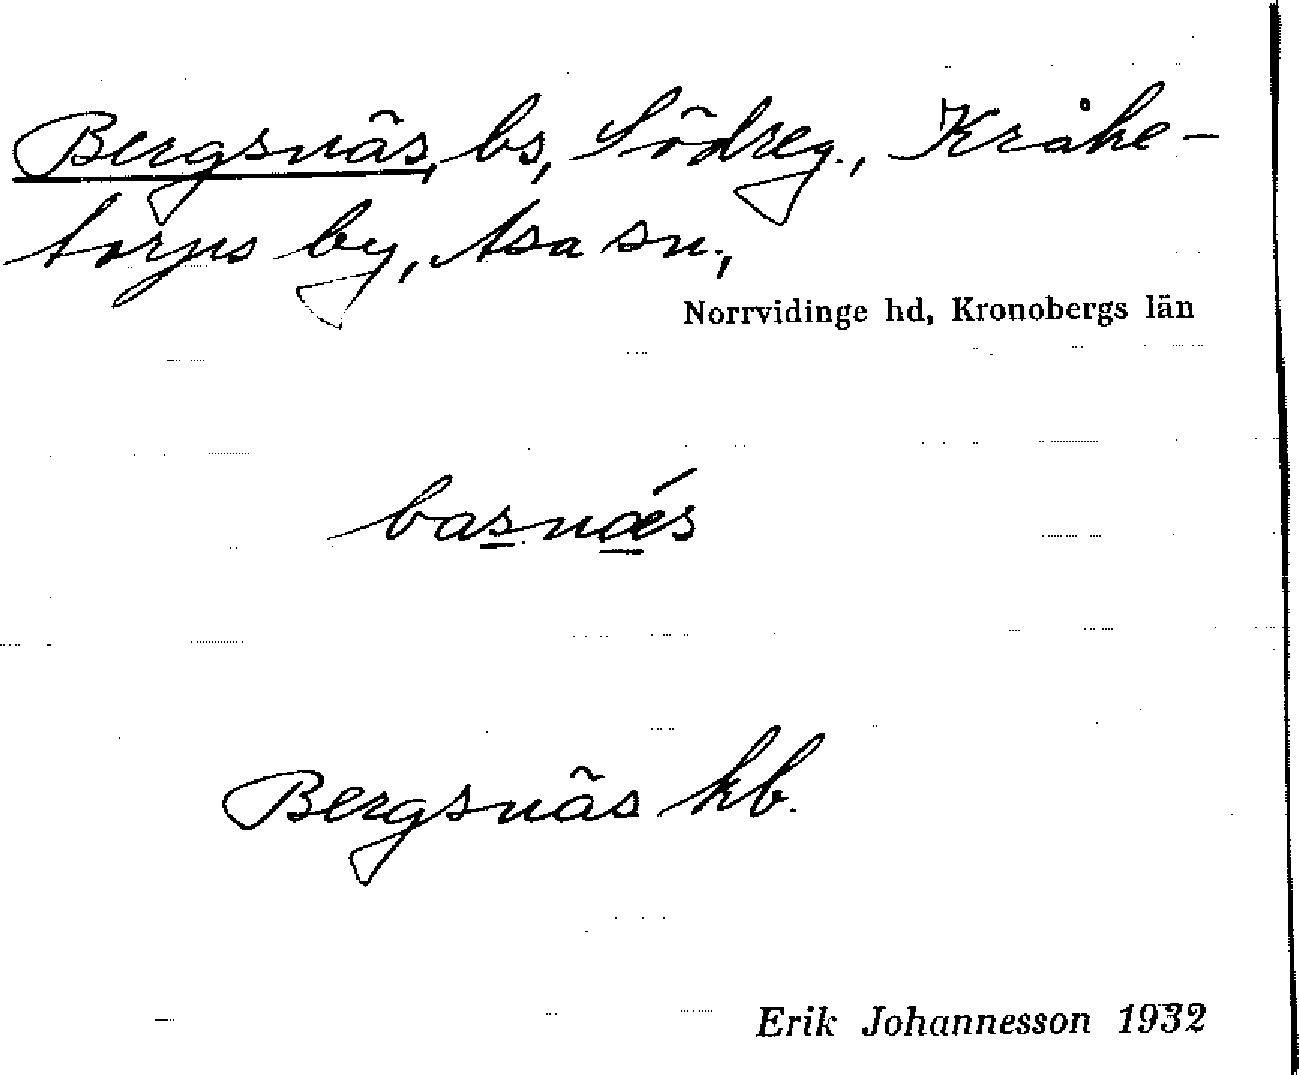 Bergsnäs, bs, Södreg., Kråke-
torps by, Asa sn.,
Norrvidinge hd, Kronobergs län
basnæ´s
Bergsnäs kb.
Erik Johannesson 1932